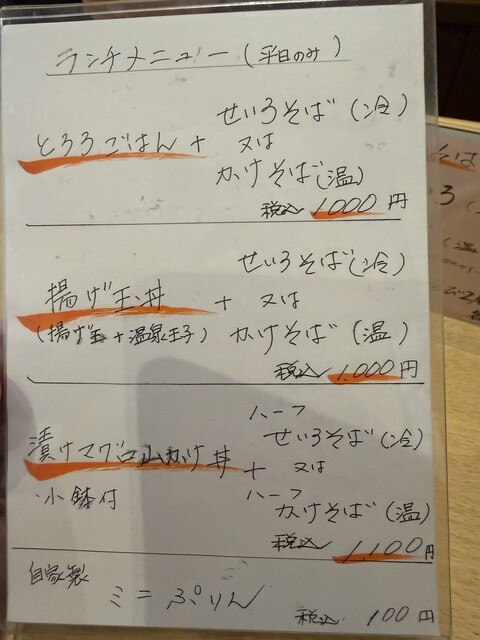 ランチメニュー(平日のみ)
せいろそば(冷)
とろろごはん + 又は
かけそば(温)
税込 1000円
せいろそば(冷)
揚げ玉丼 + 又は
(揚げ玉+温泉玉子) かけそば(温)
税込 1,000円
ハーフ
せいろそば(冷)
漬けマグロ山かけ丼 + 又は
ハーフ
・小鉢付 かけそば(温)
税込 1,100円
自家製
ミニぷりん 税込 100円
そば